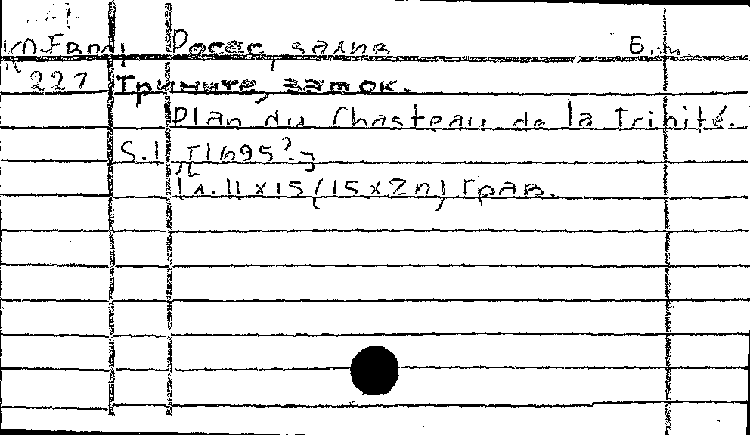 Росас, залив
227 Трините, замок.
Plan du Chasteau de la Trinité.
S.l. [1695?]
1л. 11x15 (15x20) грав.